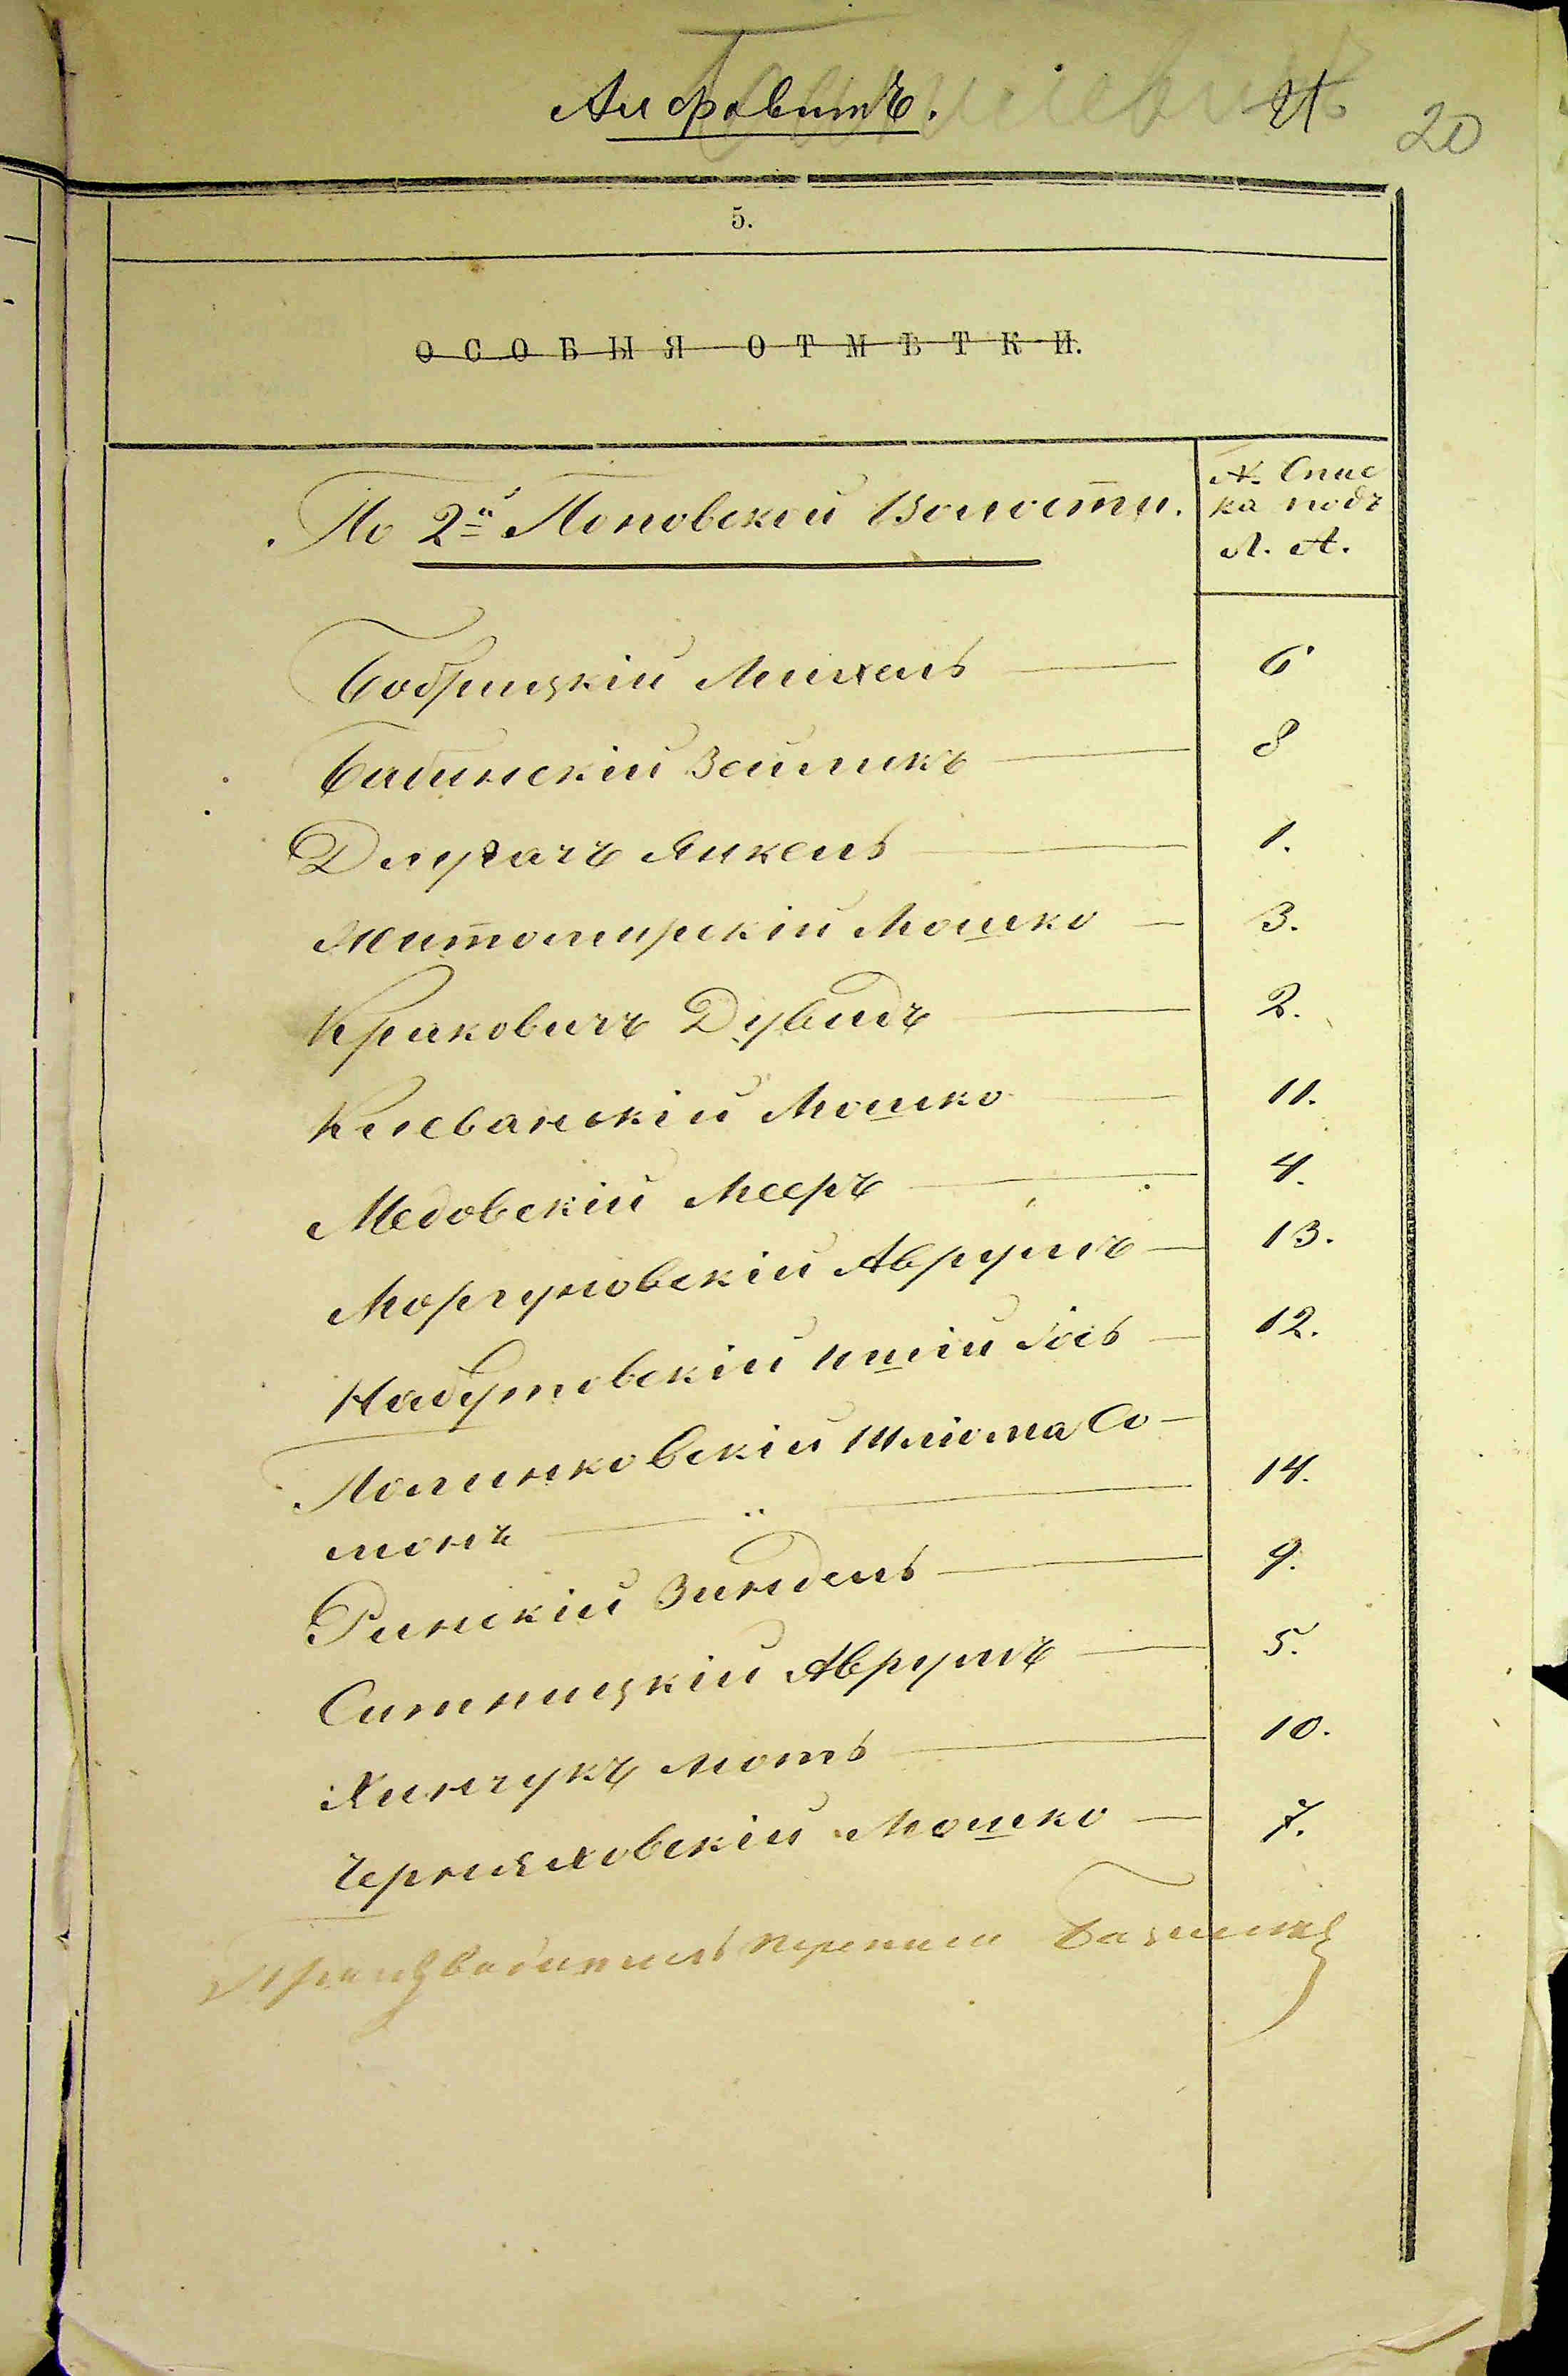 Алфовитъ.
20
5.
ОСОБЫЯ ОТМѢТКИ.
По 2й Поповской Волости.
№ Спис
ка подъ
Л. А.
Бобрицкій Михель — 6
Бабинскій Зейликъ — 8
Длугачъ Янкель — 1.
Житомирскій Мошко — 3.
Краковичъ Дувидъ — 2.
Клеванскій Мошко — 11.
Медовскій Мееръ — 4.
Моргуновскій Аврумъ — 13.
Набутовскій Іось — 12.
Полинковскій Шліома Со-
монъ — 14.
Ринскій Зиндель — 9.
Ситницкій Аврумъ — 5.
Хинчукъ Моть — 10.
Черняховскій Мошко — 7.
Производитель переписи